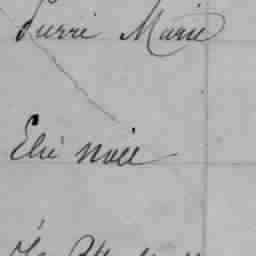 Pierre Marie
Elie Noël